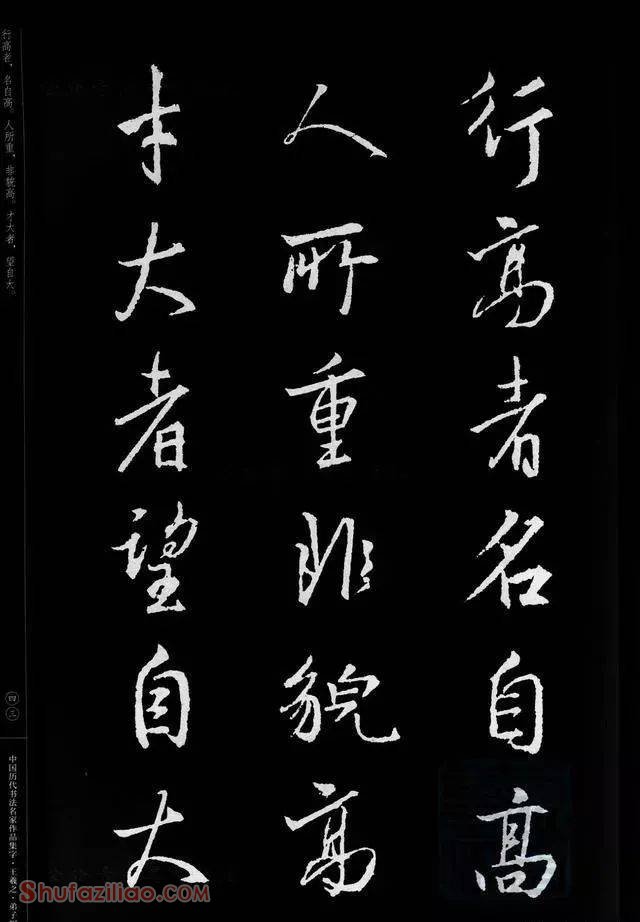 行高者名自高
人所重非貌高
才大者望自大
行高者，名自高。人所重，非貌高。才大者，望自大。
四三
中国历代书法名家作品集字·王羲之·弟子
Shufaziliao.com